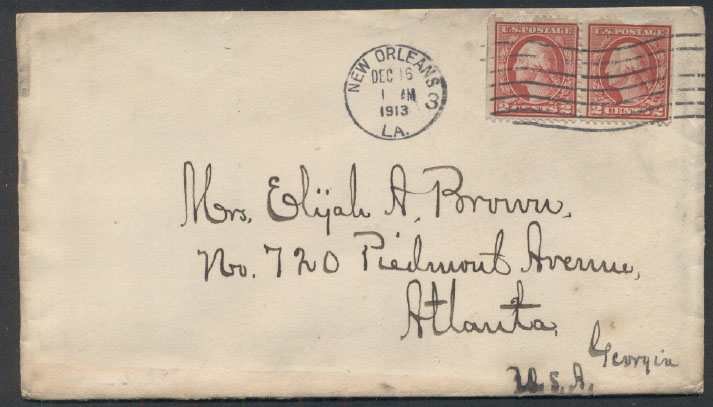 U.S. POSTAGE U.S. POSTAGE
2 CENTS 2 2 CENTS 2
NEW ORLEANS 3
DEC 16
1 AM
1913
LA.
Mrs. Elijah A. Brown,
No. 720 Piedmont Avenue,
Atlanta,
Georgia
U.S.A.